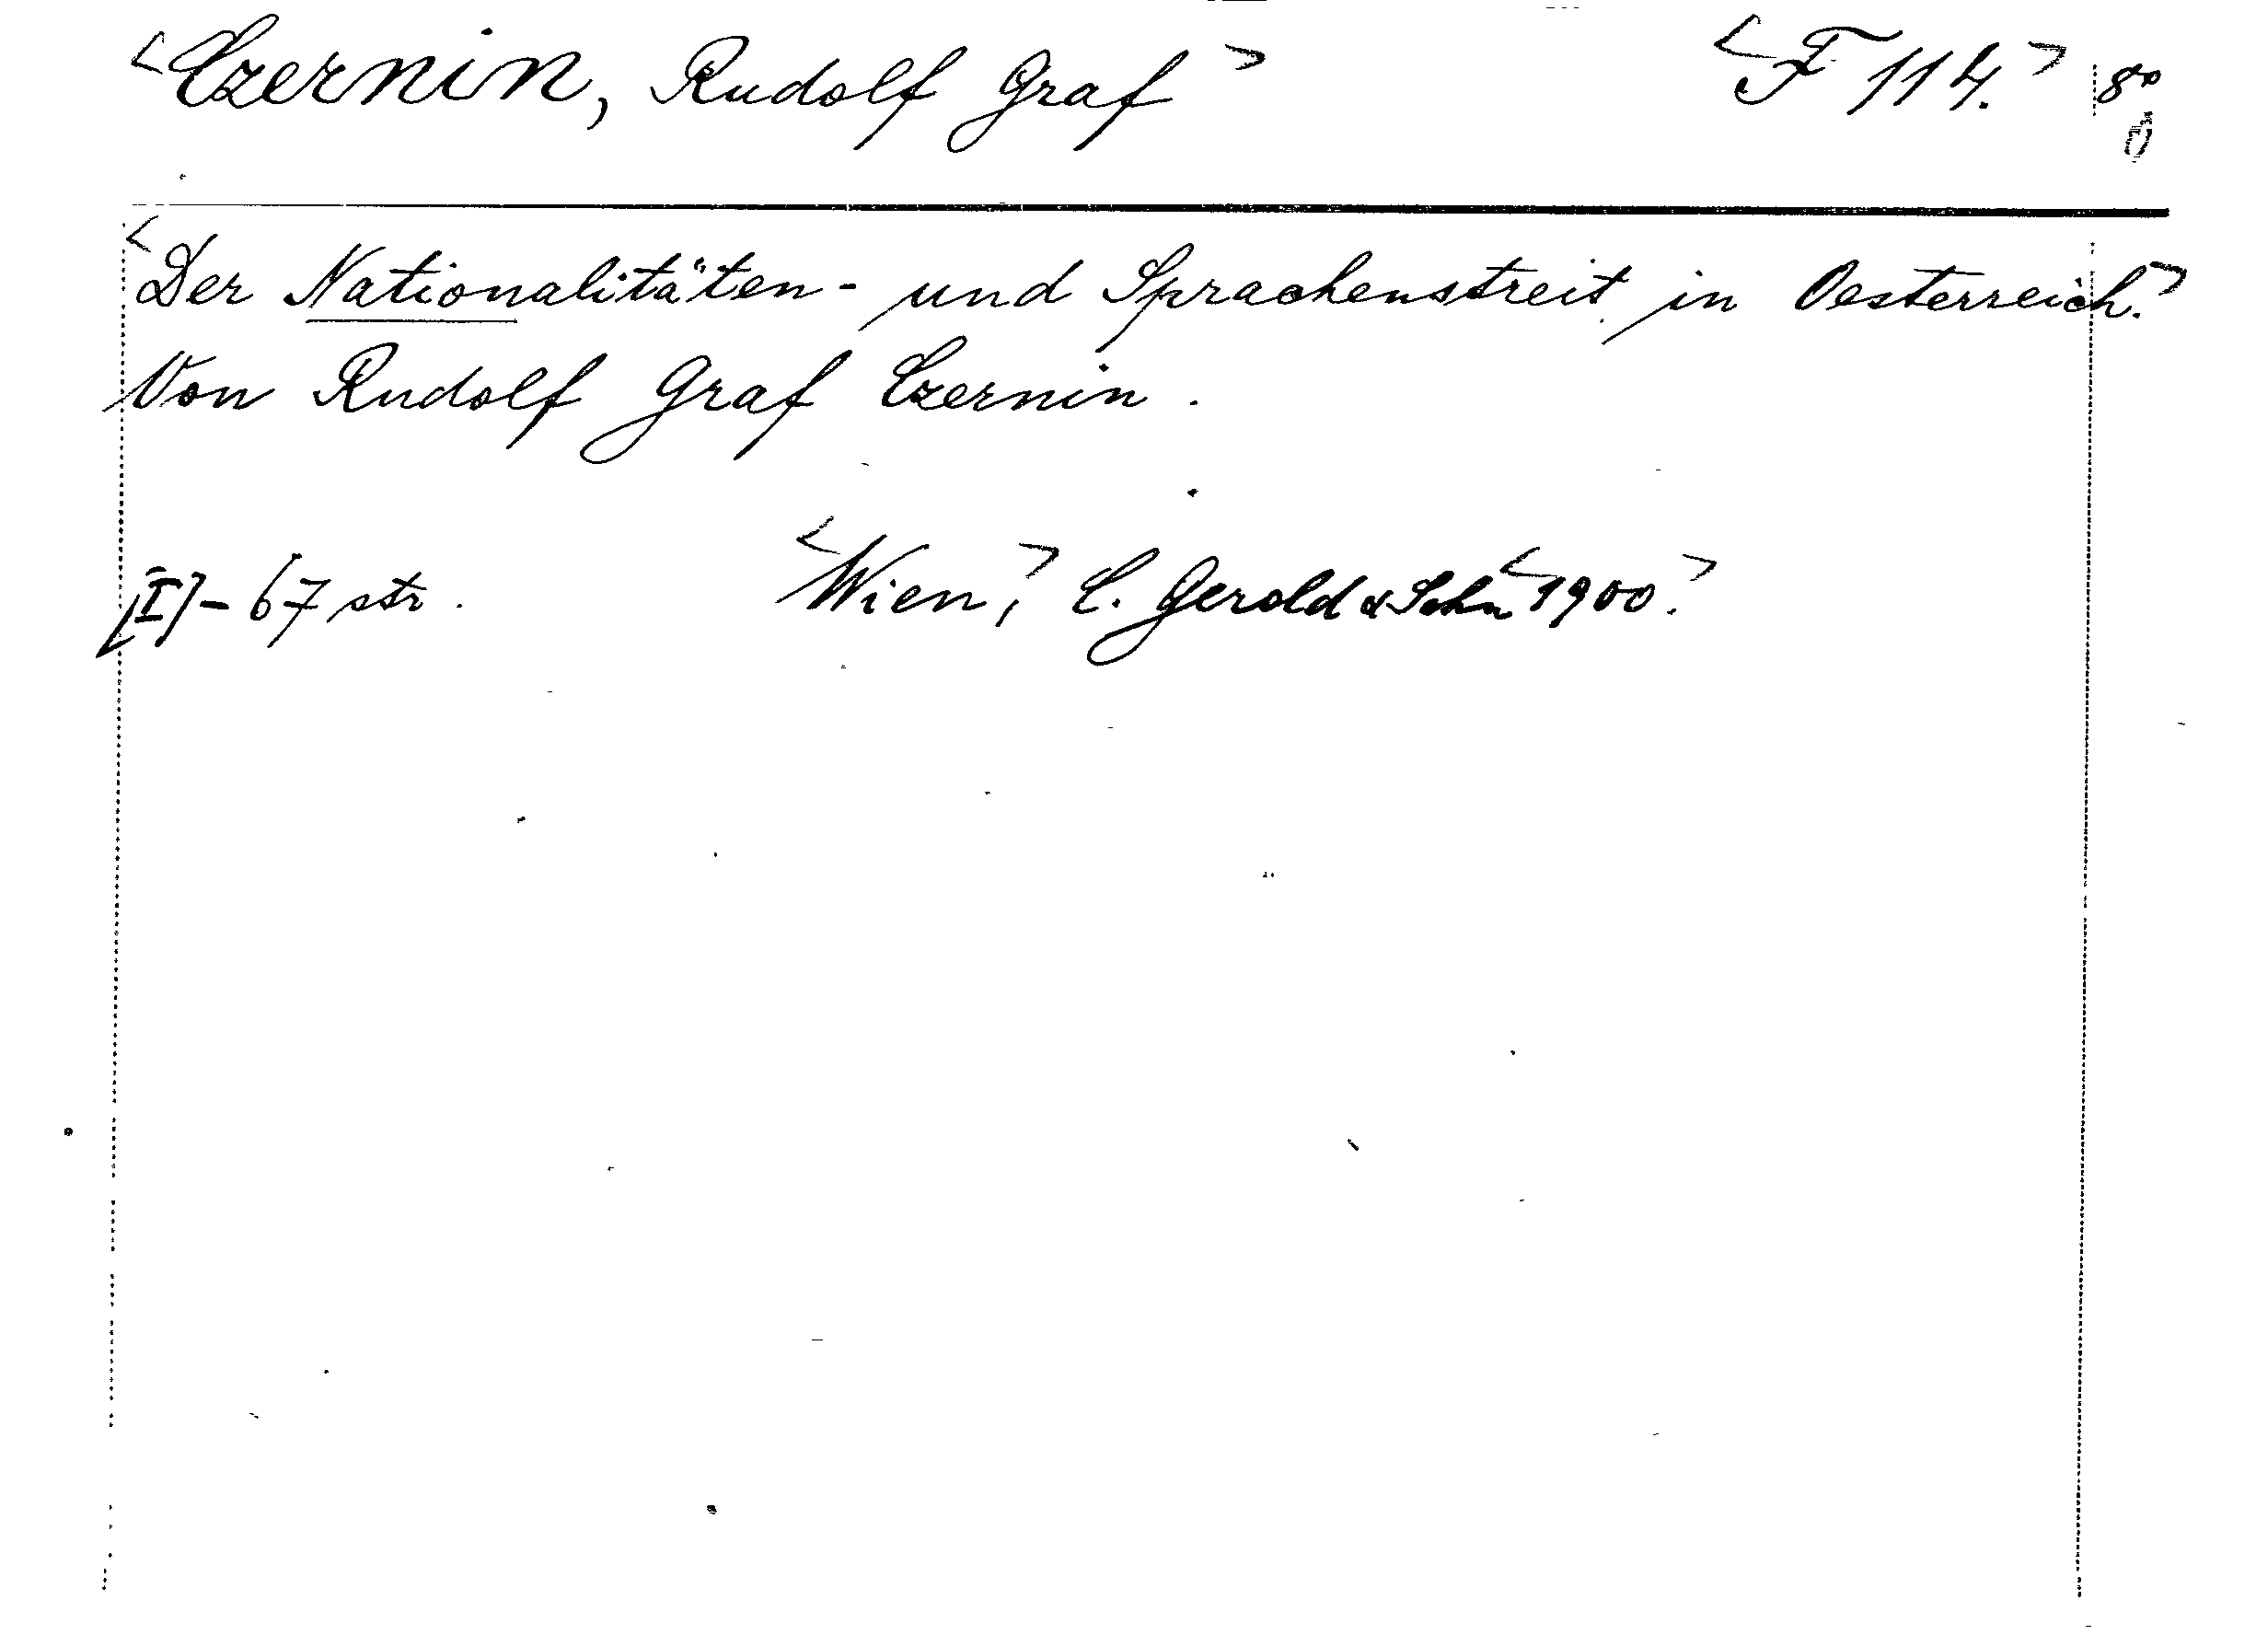 <Czernin, Rudolf Graf> <F 114.> 8°
<Der Nationalitäten- und Sprachenstreit in Oesterreich.>
Von Rudolf Graf Czernin.
[I]-67 str. <Wien,> C. Gerold & Sohn <1900.>